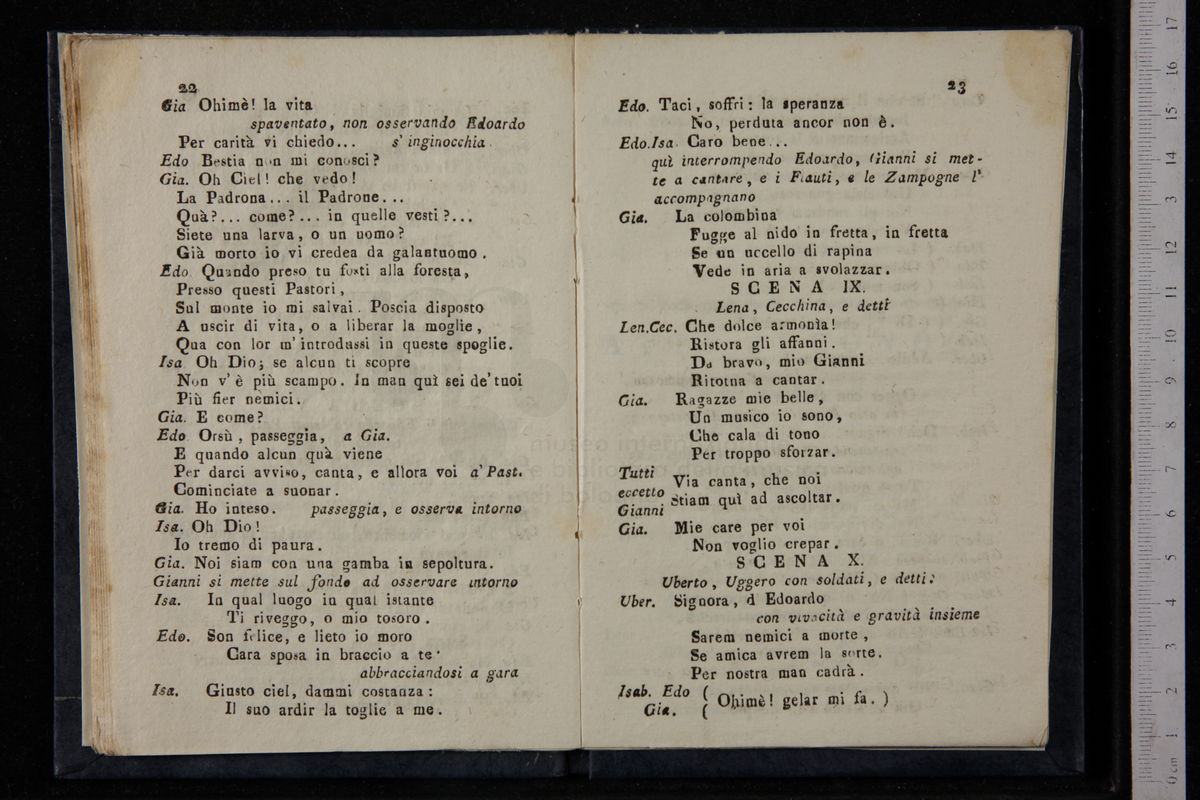 22
Gia Ohimè! la vita
spaventato, non osservando Edoardo
Per carità vi chiedo... s' inginocchia.
Edo Bestia non mi conosci?
Gia. Oh Ciel! che vedo!
La Padrona... il Padrone...
Quà?... come?... in quelle vesti?...
Siete una larva, o un uomo?
Già morto io vi credea da galantuomo.
Edo. Quando preso tu fosti alla foresta,
Presso questi Pastori,
Sul monte io mi salvai. Poscia disposto
A uscir di vita, o a liberar la moglie,
Qua con lor m'introdussi in queste spoglie.
Isa Oh Dio; se alcun ti scopre
Non v'è più scampo. In man quì sei de'tuoi
Più fier nemici.
Gia. E come?
Edo Orsù, passeggia, a Gia.
E quando alcun quà viene
Per darci avviso, canta, e allora voi a' Past.
Cominciate a suonar.
Gia. Ho inteso. passeggia, e osserva intorno
Isa. Oh Dio!
Io tremo di paura.
Gia. Noi siam con una gamba in sepoltura.
Gianni si mette sul fondo ad osservare intorno
Isa. In qual luogo in qual istante
Ti riveggo, o mio tosoro.
Edo. Son felice, e lieto io moro
Cara sposa in braccio a te.
abbracciandosi a gara
Isa. Giusto ciel, dammi costanza:
Il suo ardir la toglie a me.
23
Edo. Taci, soffri: la speranza
No, perduta ancor non è.
Edo.Isa. Caro bene...
quì interrompendo Edoardo, Gianni si met-
te a cantare, e i Flauti, e le Zampogne l'
accompagnano
Gia. La colombina
Fugge al nido in fretta, in fretta
Se un uccello di rapina
Vede in aria a svolazzar.
SCENA IX.
Lena, Cecchina, e detti
Len.Cec. Che dolce armonìa!
Ristora gli affanni.
Da bravo, mio Gianni
Ritotna a cantar.
Gia. Ragazze mie belle,
Un musico io sono,
Che cala di tono
Per troppo sforzar.
Tutti
eccetto
Gianni
Via canta, che noi
Stiam quì ad ascoltar.
Gia. Mie care per voi
Non voglio crepar.
SCENA X.
Uberto, Uggero con soldati, e detti:
Uber. Signora, d Edoardo
con vivacità e gravità insieme
Sarem nemici a morte,
Se amica avrem la sorte.
Per nostra man cadrà.
Isab. Edo (
Gia. ( Ohimè! gelar mi fa. )